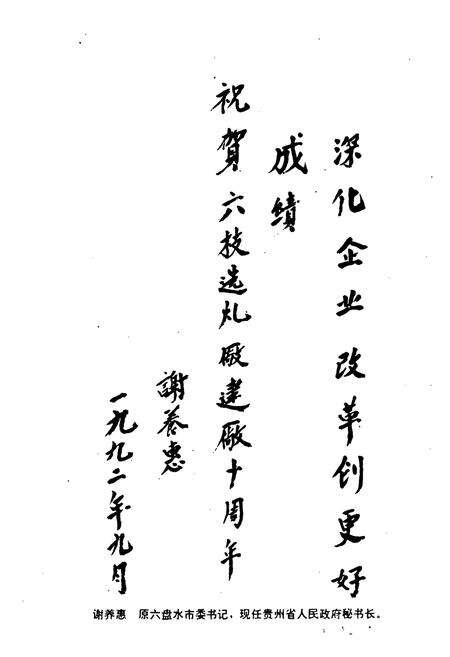 深化企业改革创更好
成绩
祝賀六枝选廠建廠十周年
謝养惠
一九九二年九月
谢养惠 原六盘水市委书记，现任贵州省人民政府秘书长。